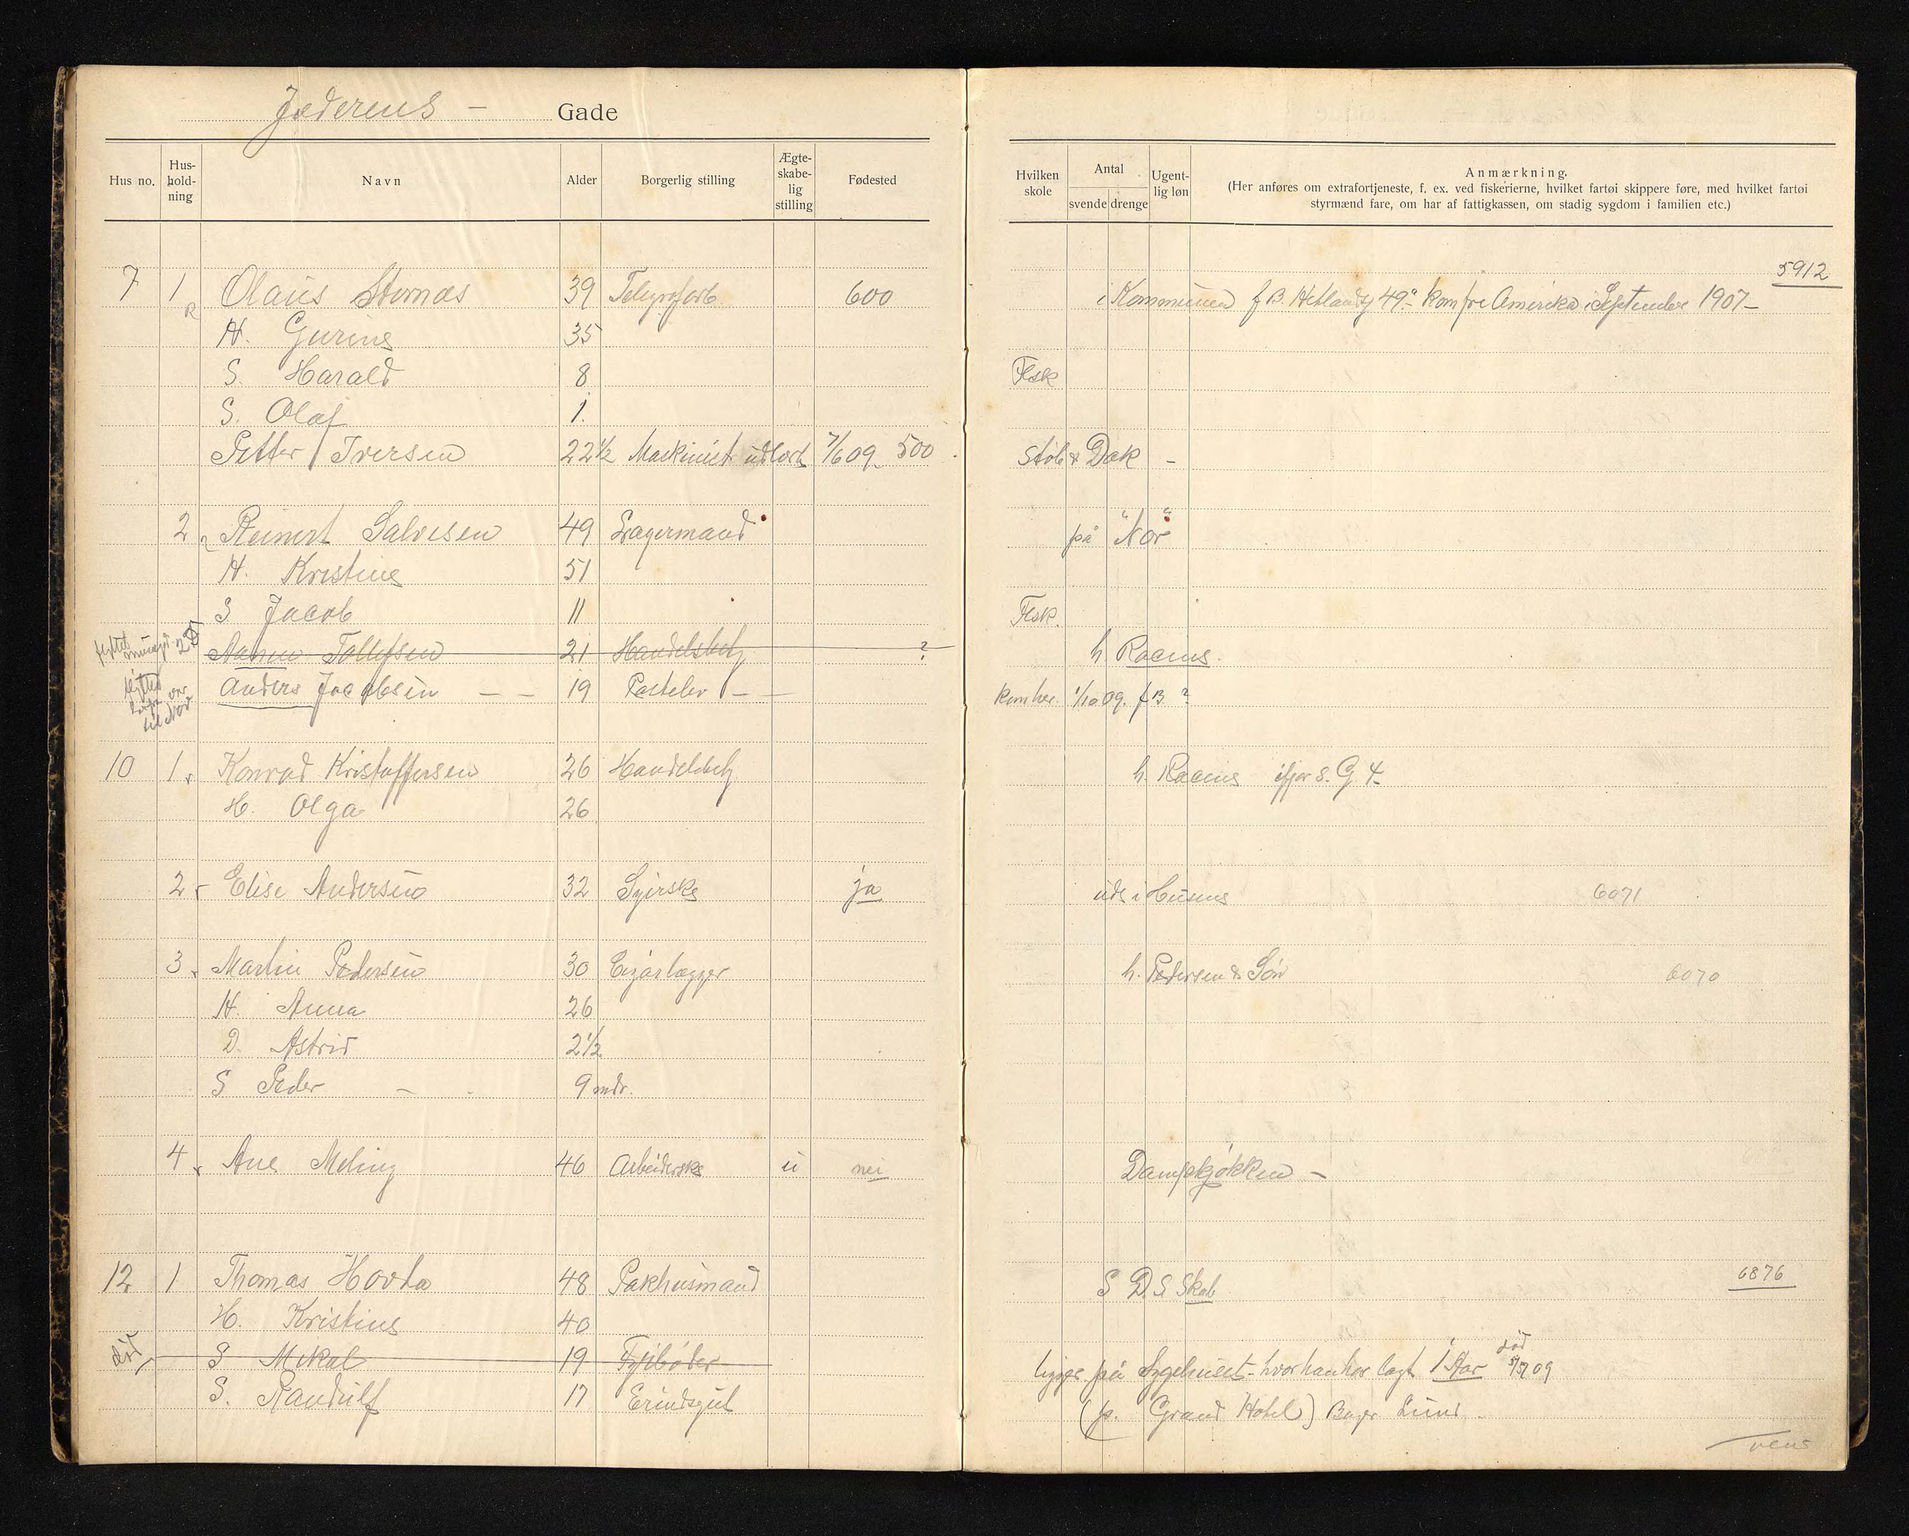 Jæderens - Gade
Hus no. Hus-hold-ning Navn Alder Borgerlig stilling Ægte-skabe-lig stilling Fødested
Hvilken skole Antal svende drenge Ugent-lig løn Anmærkning.
(Her anføres om extrafortjeneste, f. ex. ved fiskerierne, hvilket fartøi skippere føre, med hvilket fartøi
styrmænd fare, om har af fattigkassen, om stadig sygdom i familien etc.)
5912
7 1 Olaus Stornæs 39 600 i Kommunen f B. Hetlandsg 49 kom fra Amerika i September 1907-
H. Gurine 35
S. Harald 8 Flsk
S. Olaf 1.
Petter Iversen 22 1/2 Maskinist udlært 7/6 09. 500 Støb & Dok -
2 Reinert Salvesen 49 Lagermand på "Nor"
H. Kristine 51
S Jacob 11 Flsk.
Tollefsen 21 Handelsbetj ? h Racins.
Anders Jacobsen - - 19 Postelev - - kom her 1/10 09. f B. ?
10 1 Konrad Kristoffersen 26 Handelsbetj h. Racins ifjor s. G. 4-
H. Olga 26
2 Elise Andersen 32 Syerske ja ude i Husene 6071
3 Martin Pedersen 30 Cigarlægger h. Pedersen & Søn 6070
H. Anna 26
D. Astrid 2 1/2
S Peder - 9 mdr.
4 Ane Meling 46 Arbeiderske u nei Dampkjøkken -
12 1 Thomas Hovda 48 Pakhusmand S D. S. Skab 6876
H. Kristine 40
død S Mikal 19 Fyrbøder ligger på Sygehuset - hvor han har lagt 1 Aar død 09
S. Randulf 17 Erindsgut (p. Grand Hotel) Bager Lund -